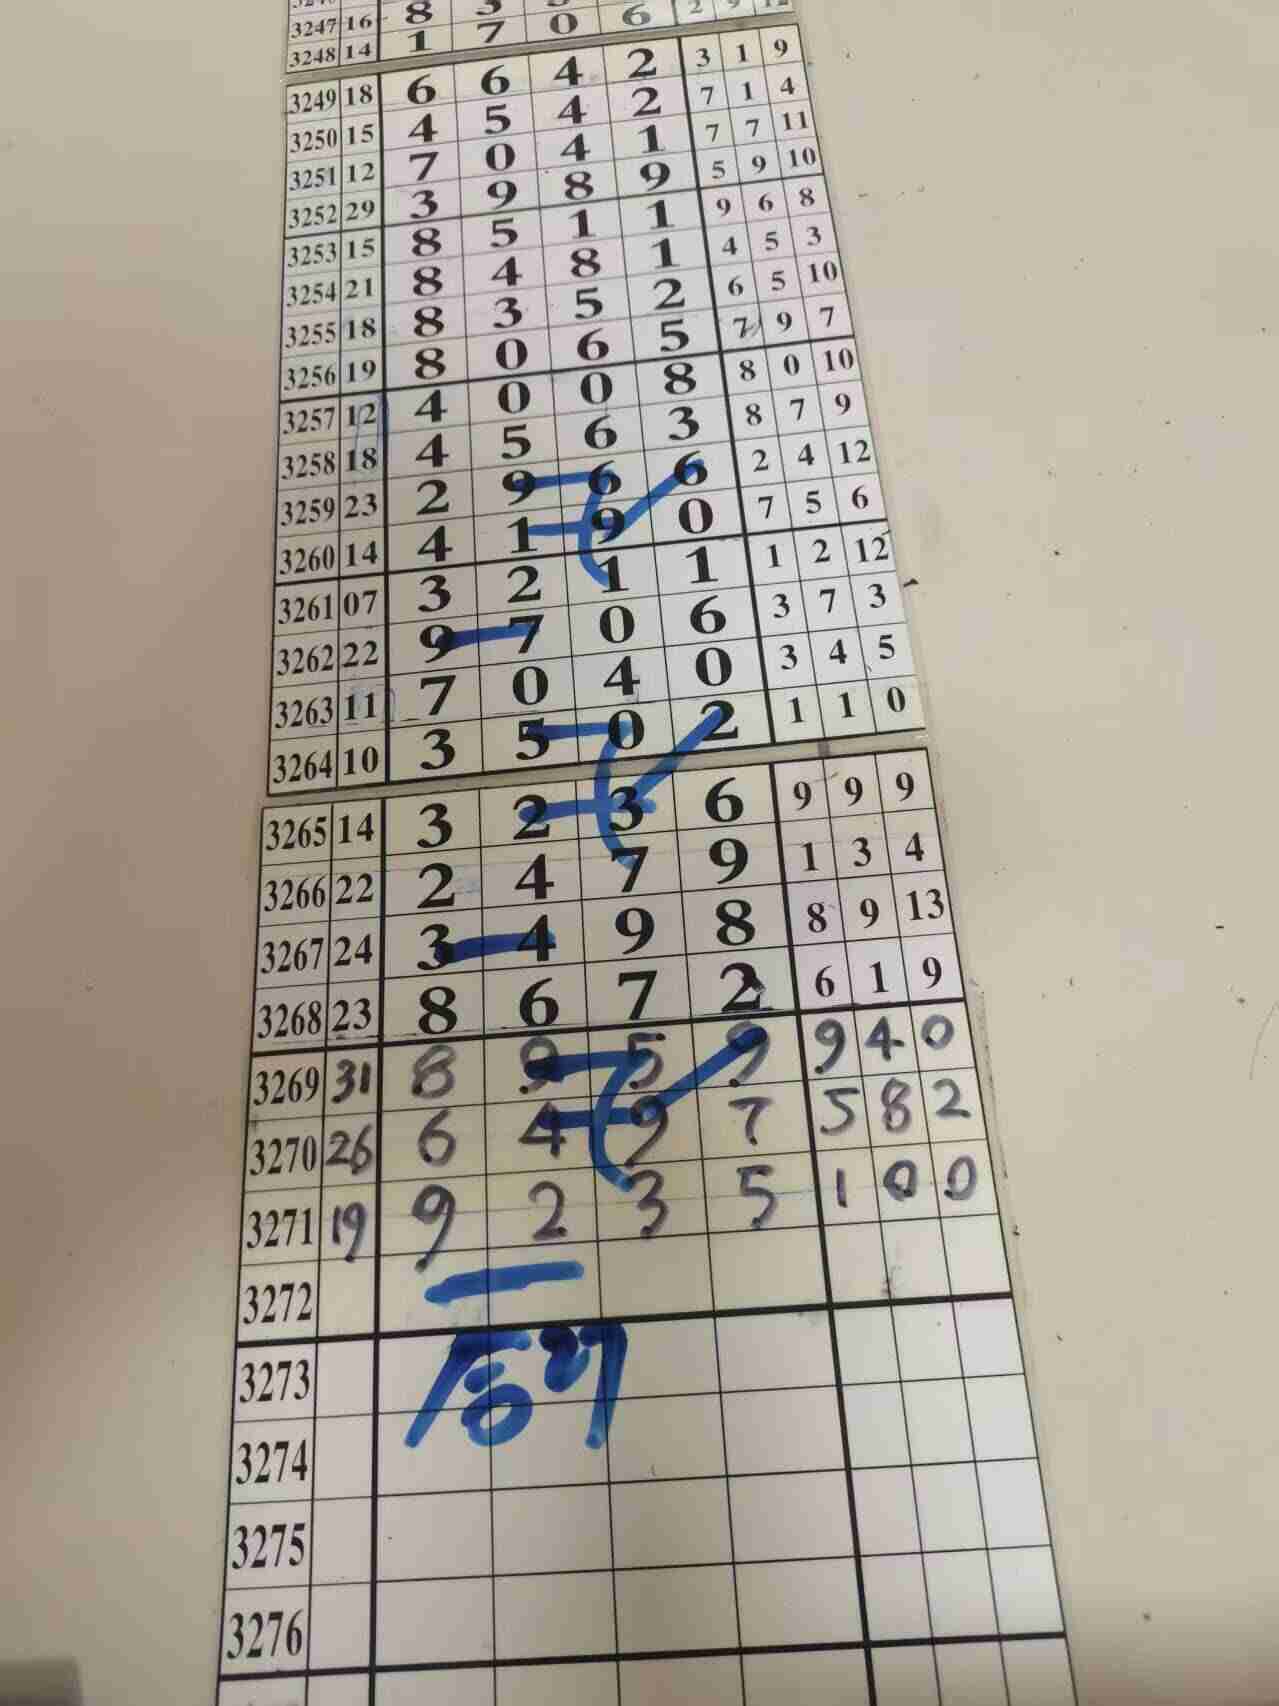 3247 16 8 3 2 9 12
3248 14 1 7 0 6
3249 18 6 6 4 2 3 1 9
3250 15 4 5 4 2 7 1 4
3251 12 7 0 4 1 7 7 11
3252 29 3 9 8 9 5 9 10
3253 15 8 5 1 1 9 6 8
3254 21 8 4 8 1 4 5 3
3255 18 8 3 5 2 6 5 10
3256 19 8 0 6 5 7 9 7
3257 12 4 0 0 8 8 0 10
3258 18 4 5 6 3 8 7 9
3259 23 2 9 6 6 2 4 12
3260 14 4 1 9 0 7 5 6
3261 07 3 2 1 1 1 2 12
3262 22 9 7 0 6 3 7 3
3263 11 7 0 4 0 3 4 5
3264 10 3 5 0 2 1 1 0
3265 14 3 2 3 6 9 9 9
3266 22 2 4 7 9 1 3 4
3267 24 3 4 9 8 8 9 13
3268 23 8 6 7 2 6 1 9
3269 31 8 9 5 9 9 4 0
3270 26 6 4 9 7 5 8 2
3271 19 9 2 3 5 1 0 0
3272
3273
3274
3275
3276